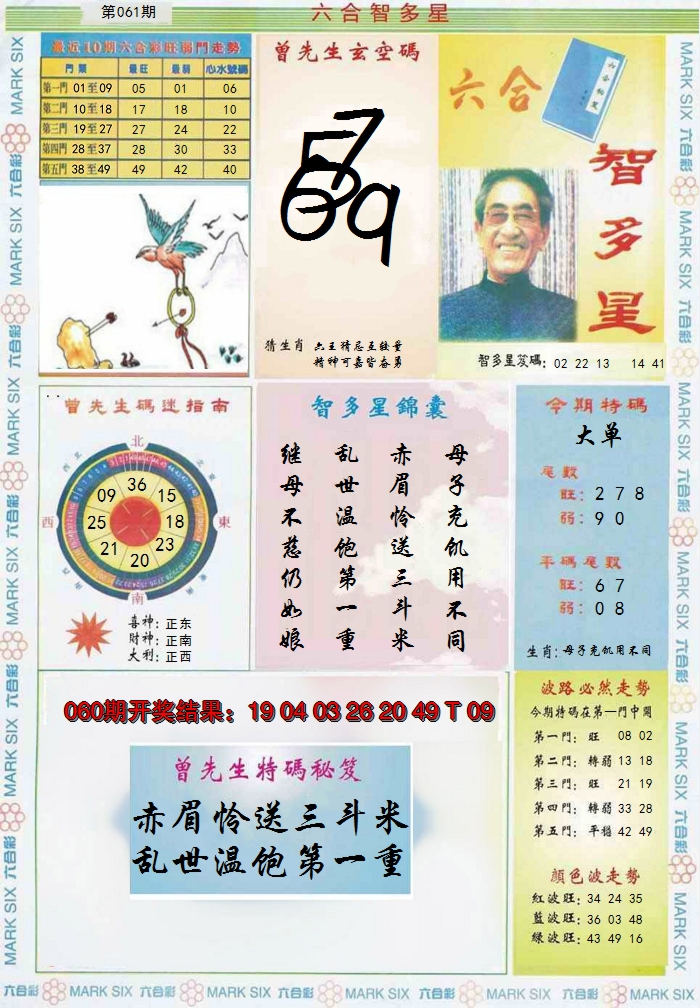 第061期
六合智多星
最近10期六合彩旺弱門走勢
門類 最旺 最弱 心水號碼
第一門 01至09 05 01 06
第二門 10至18 17 18 10
第三門 19至27 27 24 22
第四門 28至37 28 30 33
第五門 38至49 49 42 40
曾先生玄空碼
5 7
6 9
猜生肖
精神可嘉皆奋勇
六合
智多星
智多星笈碼: 02 22 13 14 41
曾先生碼迷指南
北
西
東
南
36
15
18
23
20
21
25
09
喜神: 正东
财神: 正南
大利: 正西
智多星錦囊
母子充饥用不同
赤眉怜送三斗米
乱世温饱第一重
继母不慈仍如娘
今期特碼
大单
尾數
旺: 2 7 8
弱: 9 0
平碼尾數
旺: 6 7
弱: 0 8
生肖: 母子充饥用不同
060期开奖结果: 19 04 03 26 20 49 T 09
曾先生特碼秘笈
赤眉怜送三斗米
乱世温饱第一重
波路必然走勢
今期特碼在第一門中開
第一門: 旺 08 02
第二門: 轉弱 13 18
第三門: 旺 21 19
第四門: 轉弱 33 28
第五門: 平穩 42 49
顏色波走勢
紅波旺: 34 24 35
藍波旺: 36 03 48
綠波旺: 43 49 16
MARK SIX 六合彩